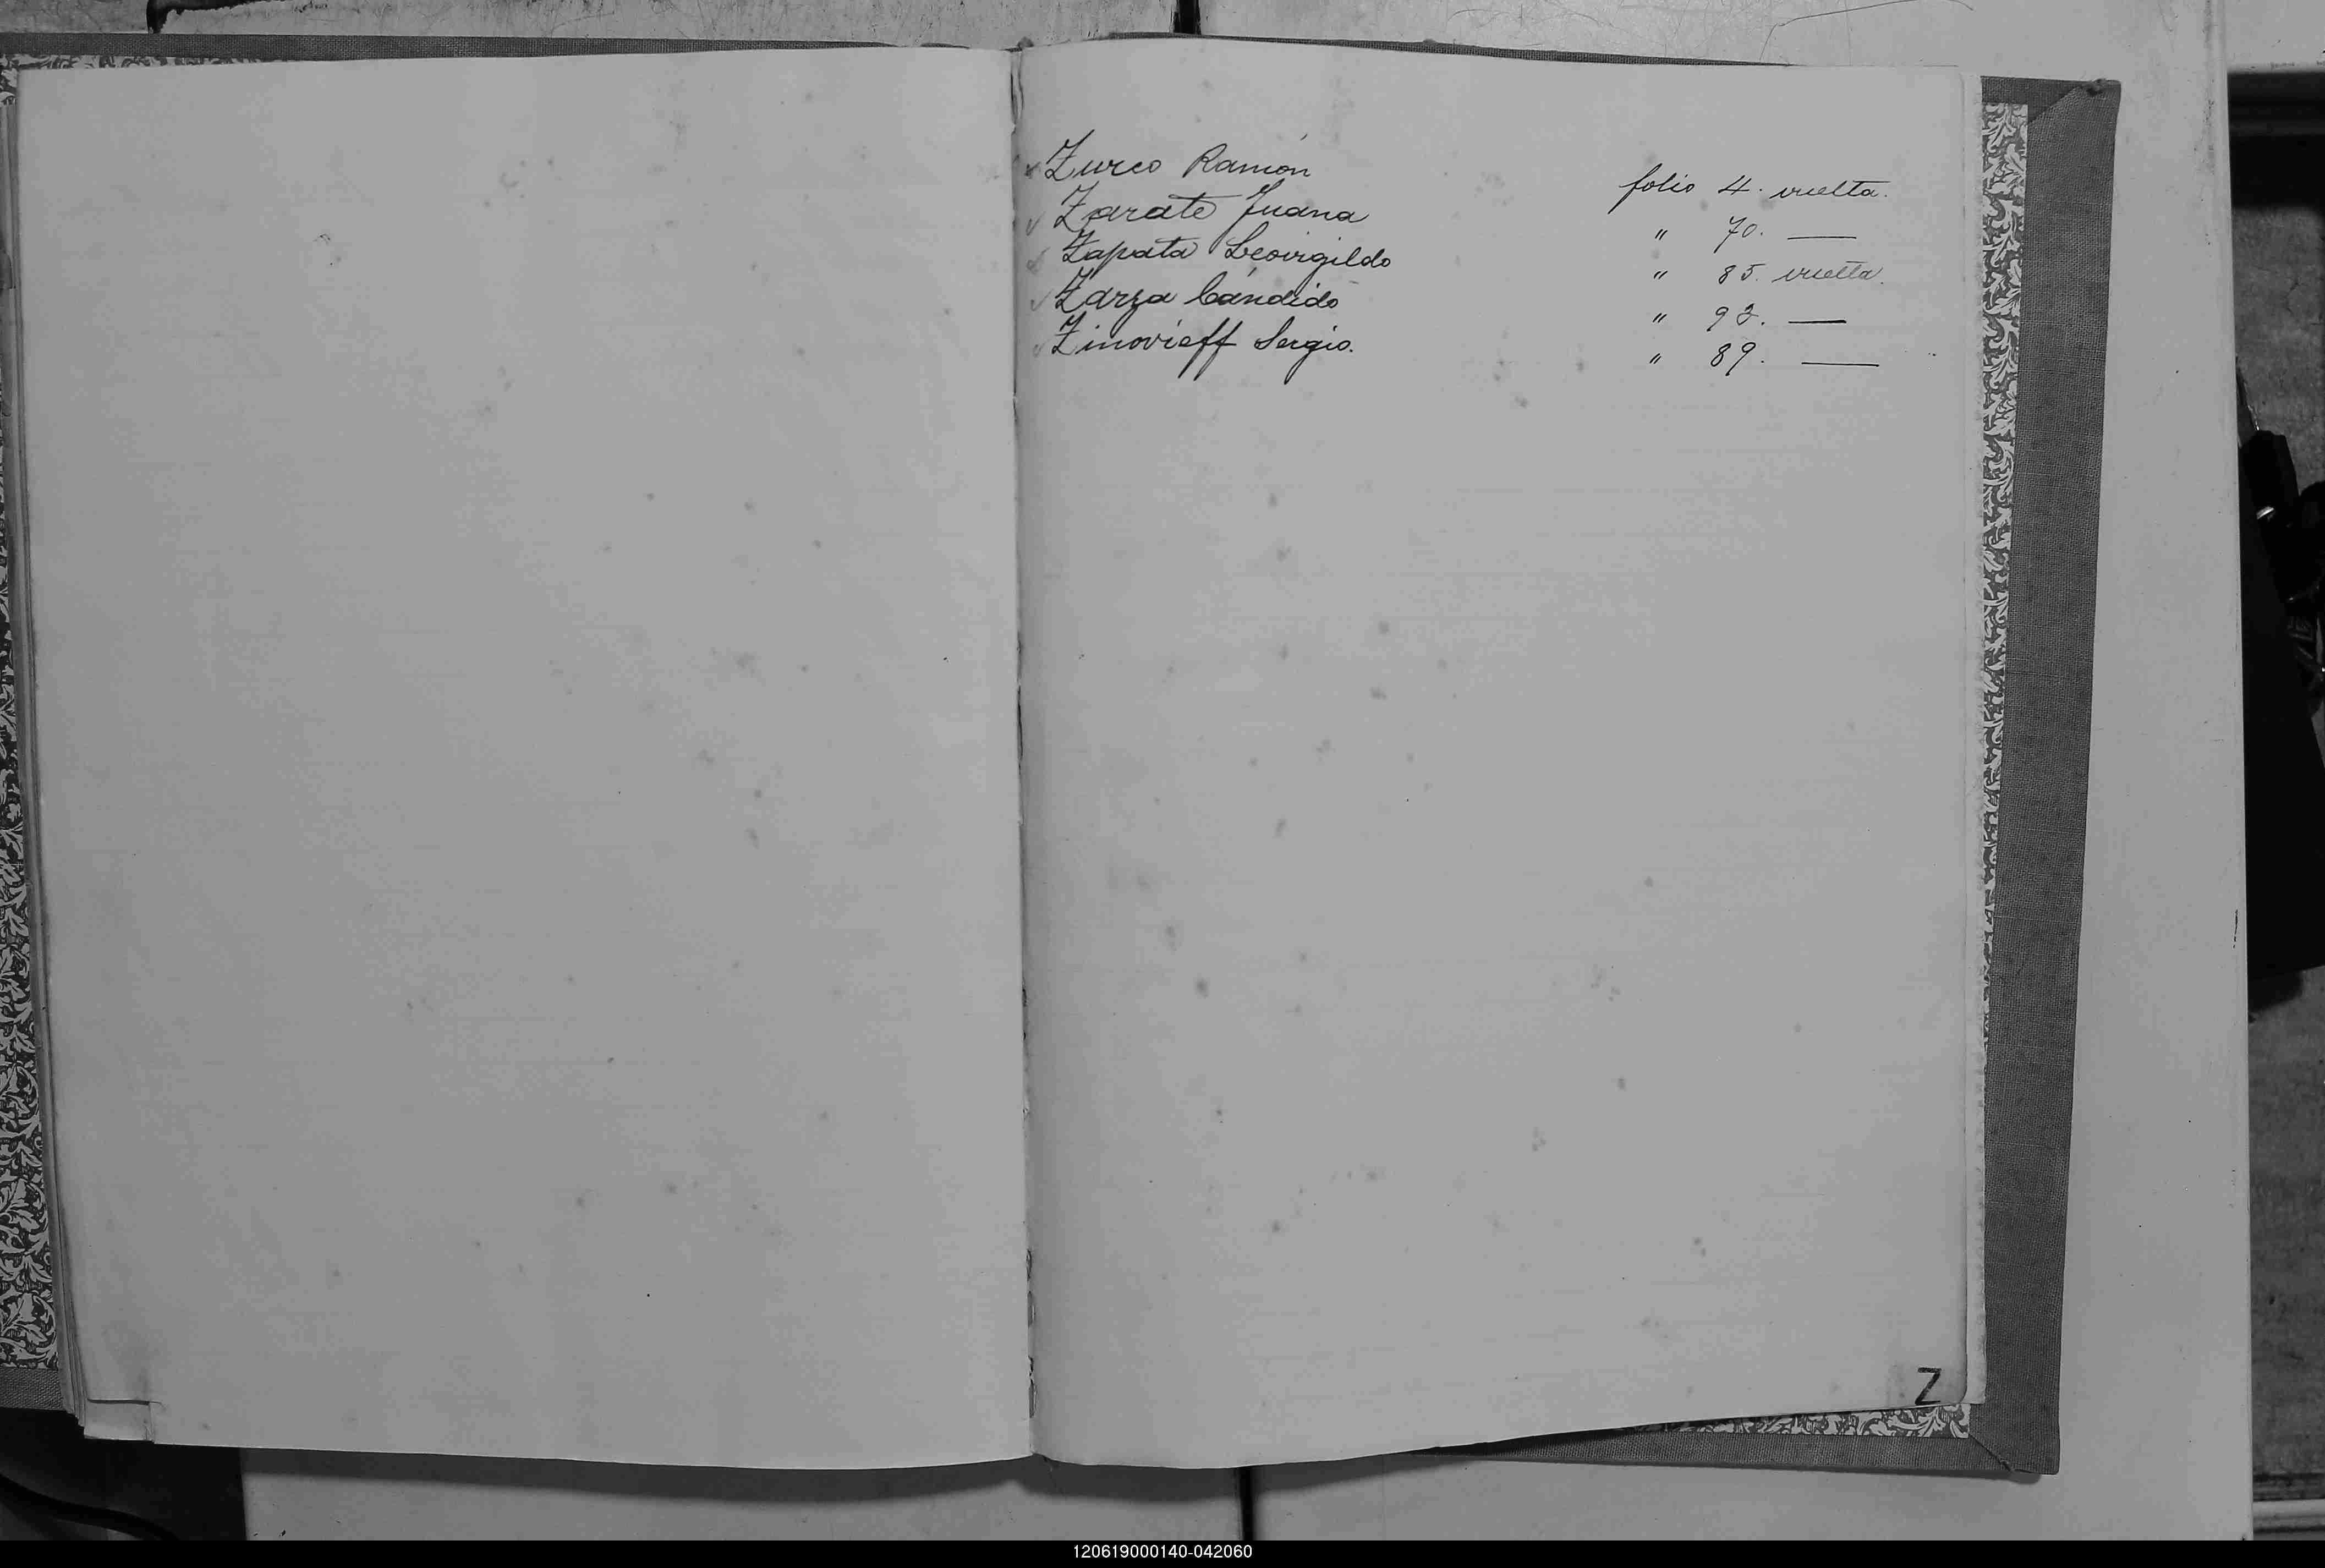 Zurco Ramón folio 4. vuelta.
Zarate Juana " 70. —
Zapata Leovigildo " 85. vuelta.
Zarza Cándido " 93. —
Zinovieff Sergio. " 89. —
Z
120619000140-042060